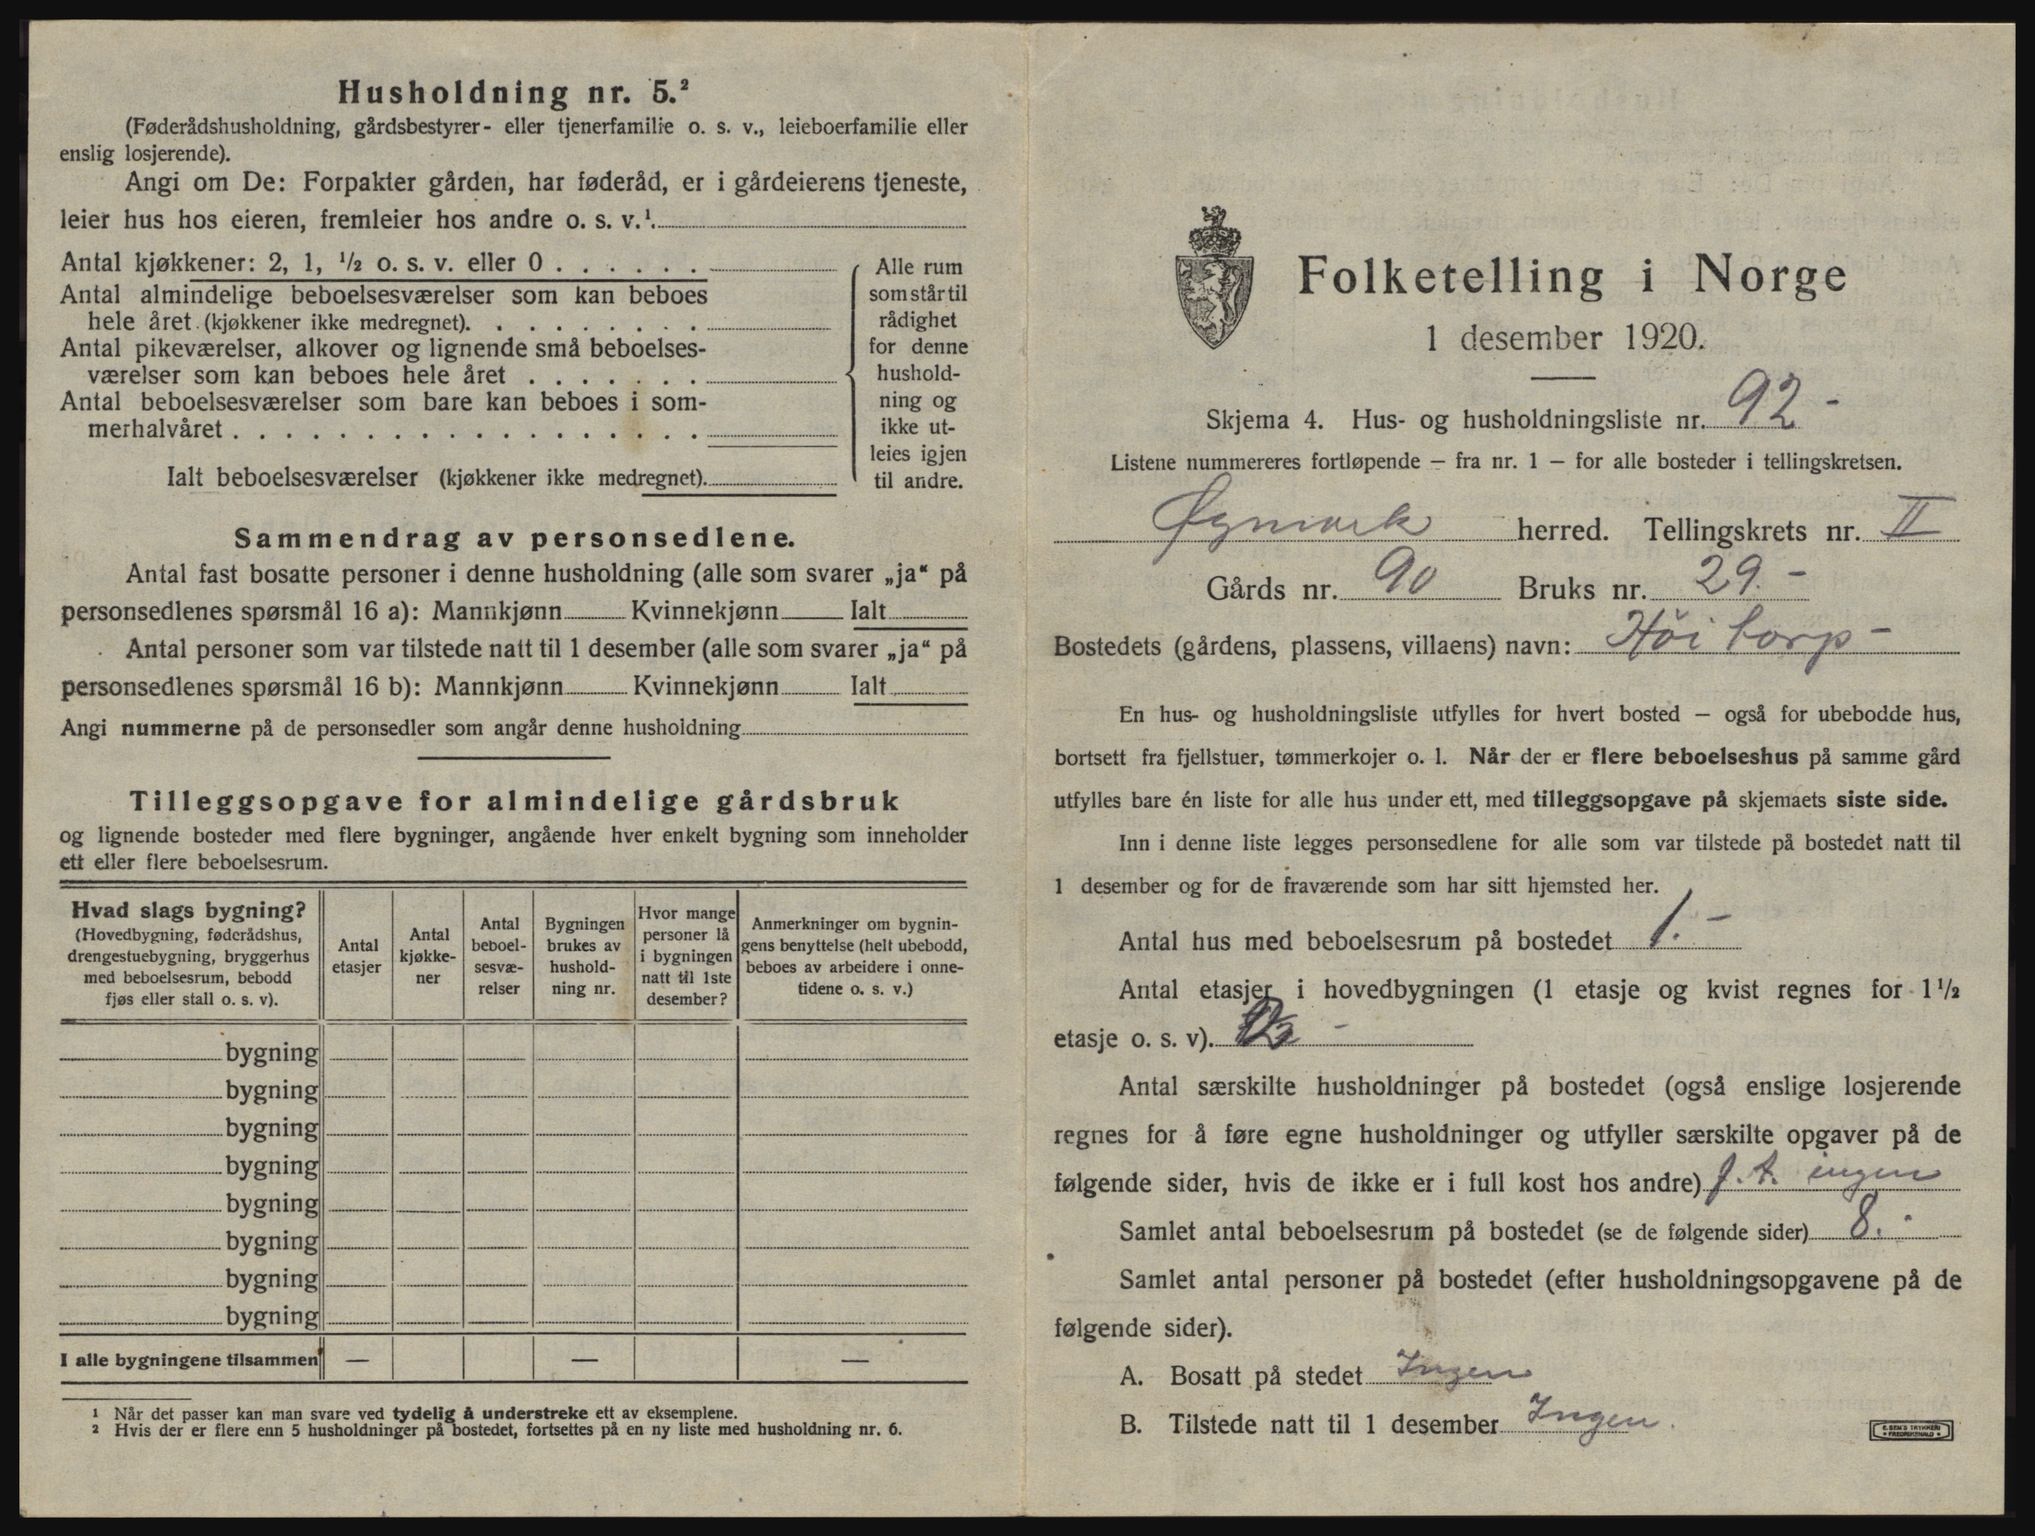 Husholdning nr. 5.²
(Føderådshusholdning, gårdsbestyrer- eller tjenerfamilie o. s. v., leieboerfamilie eller
enslig losjerende).
Angi om De: Forpakter gården, har føderåd, er i gårdeierens tjeneste,
leier hus hos eieren, fremleier hos andre o. s. v.¹.
Antal kjøkkener: 2, 1, ½ o. s. v. eller 0 . . . . . .
Antal almindelige beboelsesværelser som kan beboes
hele året (kjøkkener ikke medregnet). . . . . . . . .
Antal pikeværelser, alkover og lignende små beboelses-
værelser som kan beboes hele året . . . . . . .
Antal beboelsesværelser som bare kan beboes i som-
merhalvåret . . . . . . . . . . . . . . . . . .
Ialt beboelsesværelser (kjøkkener ikke medregnet).
Alle rum
som står til
rådighet
for denne
hushold-
ning og
ikke ut-
leies igjen
til andre.
Sammendrag av personsedlene.
Antal fast bosatte personer i denne husholdning (alle som svarer „ja“ på
personsedlenes spørsmål 16 a): Mannkjønn Kvinnekjønn Ialt
Antal personer som var tilstede natt til 1 desember (alle som svarer „ja“ på
personsedlenes spørsmål 16 b): Mannkjønn Kvinnekjønn Ialt
Angi nummerne på de personsedler som angår denne husholdning
Tilleggsopgave for almindelige gårdsbruk
og lignende bosteder med flere bygninger, angående hver enkelt bygning som inneholder
ett eller flere beboelsesrum.
Hvad slags bygning?
(Hovedbygning, føderådshus,
drengestuebygning, bryggerhus
med beboelsesrum, bebodd
fjøs eller stall o. s. v).
Antal
etasjer
Antal
kjøkke-
ner
Antal
beboel-
sesvæ-
relser
Bygningen
brukes av
hushold-
ning nr.
Hvor mange
personer lå
i bygningen
natt til 1ste
desember?
Anmerkninger om bygnin-
gens benyttelse (helt ubebodd,
beboes av arbeidere i onne-
tidene o. s. v.)
bygning
bygning
bygning
bygning
bygning
bygning
bygning
bygning
I alle bygningene tilsammen — — —
¹ Når det passer kan man svare ved tydelig å understreke ett av eksemplene.
² Hvis der er flere enn 5 husholdninger på bostedet, fortsettes på en ny liste med husholdning nr. 6.
Folketelling i Norge
1 desember 1920.
Skjema 4. Hus- og husholdningsliste nr. 92 -
Listene nummereres fortløpende — fra nr. 1 — for alle bosteder i tellingskretsen.
Øymark herred. Tellingskrets nr. II
Gårds nr. 90 Bruks nr. 29. -
Bostedets (gårdens, plassens, villaens) navn: Höitorp -
En hus- og husholdningsliste utfylles for hvert bosted — også for ubebodde hus,
bortsett fra fjellstuer, tømmerkojer o. l. Når der er flere beboelseshus på samme gård
utfylles bare én liste for alle hus under ett, med tilleggsopgave på skjemaets siste side.
Inn i denne liste legges personsedlene for alle som var tilstede på bostedet natt til
1 desember og for de fraværende som har sitt hjemsted her.
Antal hus med beboelsesrum på bostedet 1. -
Antal etasjer i hovedbygningen (1 etasje og kvist regnes for 1½
etasje o. s. v). -
Antal særskilte husholdninger på bostedet (også enslige losjerende
regnes for å føre egne husholdninger og utfyller særskilte opgaver på de
følgende sider, hvis de ikke er i full kost hos andre) f. t. ingen
Samlet antal beboelsesrum på bostedet (se de følgende sider) 8. -
Samlet antal personer på bostedet (efter husholdningsopgavene på de
følgende sider).
A. Bosatt på stedet Ingen
B. Tilstede natt til 1 desember Ingen.